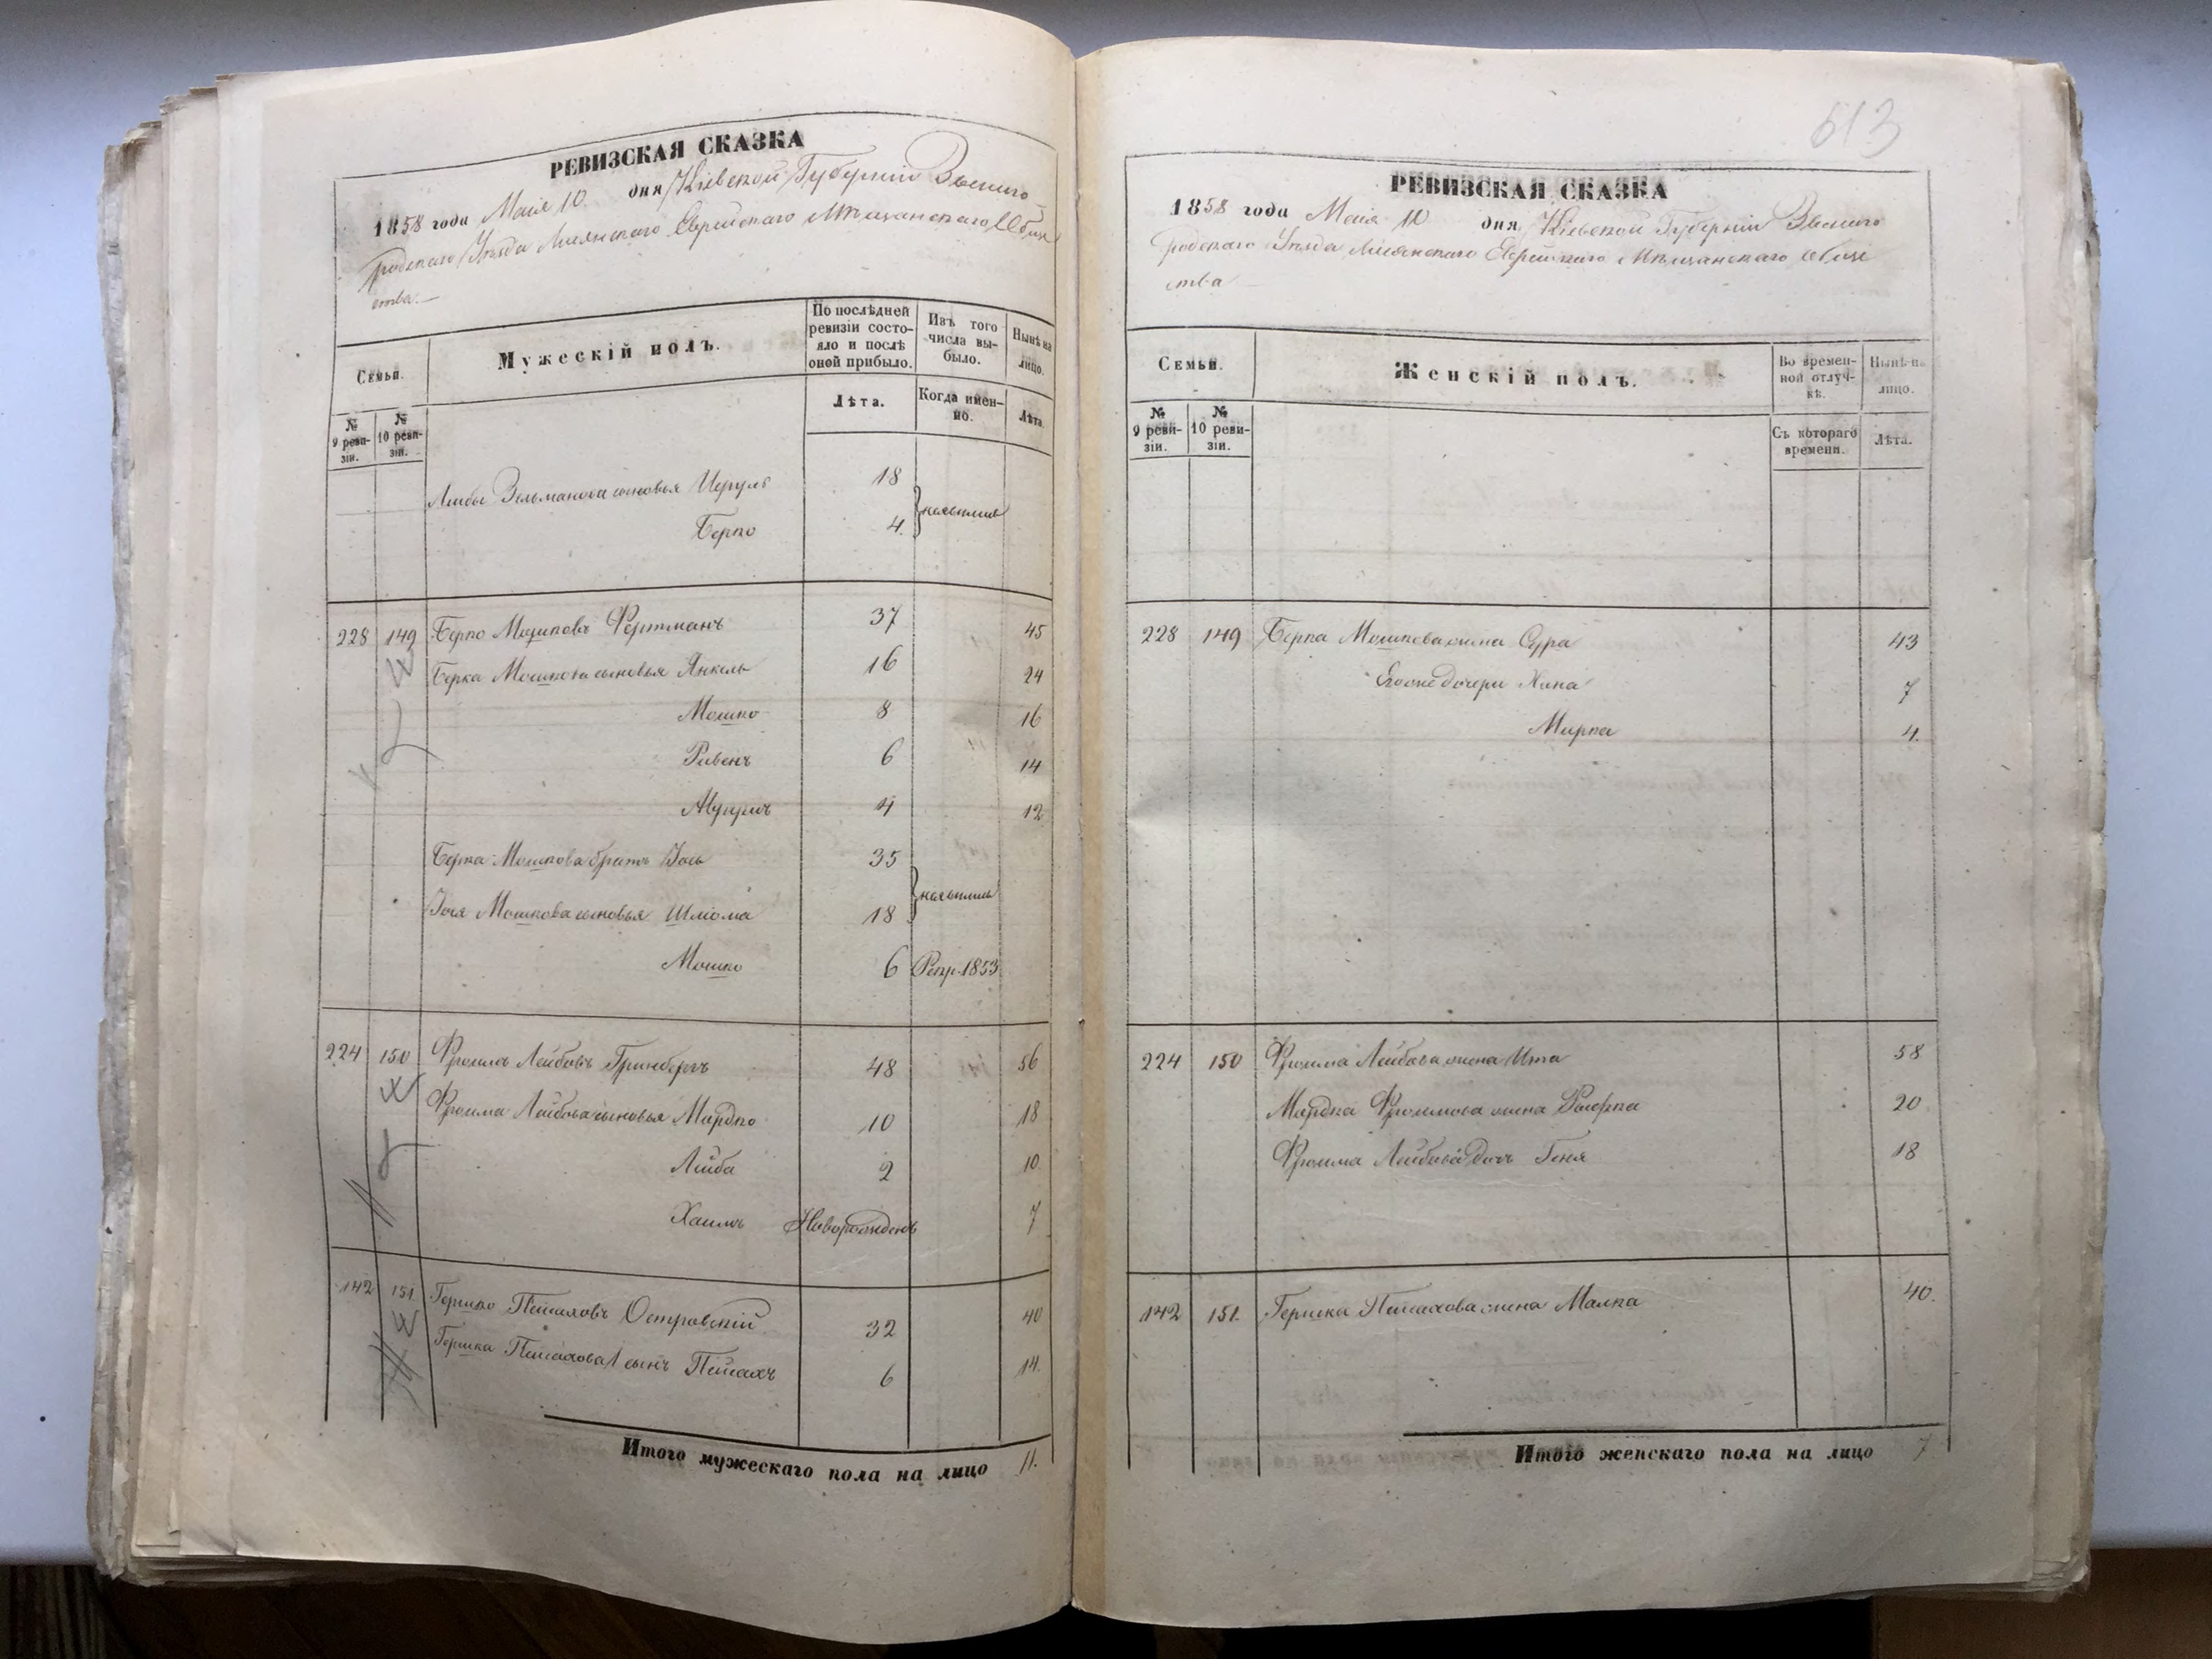 РЕВИЗСКАЯ СКАЗКА
1858 года Маія 10 дня Кіевской Губерніи Звениго
родскаго Уѣзда Лисянскаго Еврейскаго Мѣщанскаго Обще
ства.
Семьи.
Мужескій полъ.
По послѣдней ревизіи состояло и послѣ оной прибыло.
Изъ того числа выбыло.
Нынѣ на лицо.
№ 9 ревизіи.
№ 10 ревизіи.
Лѣта.
Когда именно.
Лѣта.
Лейбы Зельманова сыновья 18
Берко 4 неявились
228 149 Берко Мошковъ Фертманъ 37 45
Берка Мошкова сыновья Янкель 16 24
Мошко 8 16
Рувенъ 6 14
4 12
Берка Мошкова братъ Іось 35
Іося Мошкова сыновья Шлиома 18 неявились
Мошко 6 Рекр. 1853
224 150 Фроимъ Лейбовъ Гринбергъ 48 56
Фроима Лейбова сыновья Мордко 10 18
Лейба 2 10
Хаимъ Новорожденъ 7
142 151. Гершко Пейсаховъ Островскій 32 40
Гершка Пейсахова сынъ Пейсахъ 6 14.
Итого мужескаго пола на лицо 11.
613
РЕВИЗСКАЯ СКАЗКА
1858 года Маія 10 дня Кіевской Губерніи Звениго
родскаго Уѣзда Лисянскаго Еврейскаго Мѣщанскаго Обще
ства
Семьи.
Женскій полъ.
Во временной отлучкѣ.
Нынѣ на лицо.
№ 9 ревизіи.
№ 10 ревизіи.
Съ котораго времени.
Лѣта.
228 149 Берка Мошкова жена Сура 43
Его же дочери Хана 7
Мирка 4.
224 150 Фроима Лейбова жена Ита 58
Мордка Фроимова жена 20
Фроима Лейбова дочь Геня 18
142 151. Гершка Пейсахова жена Малка 40.
Итого женскаго пола на лицо 7